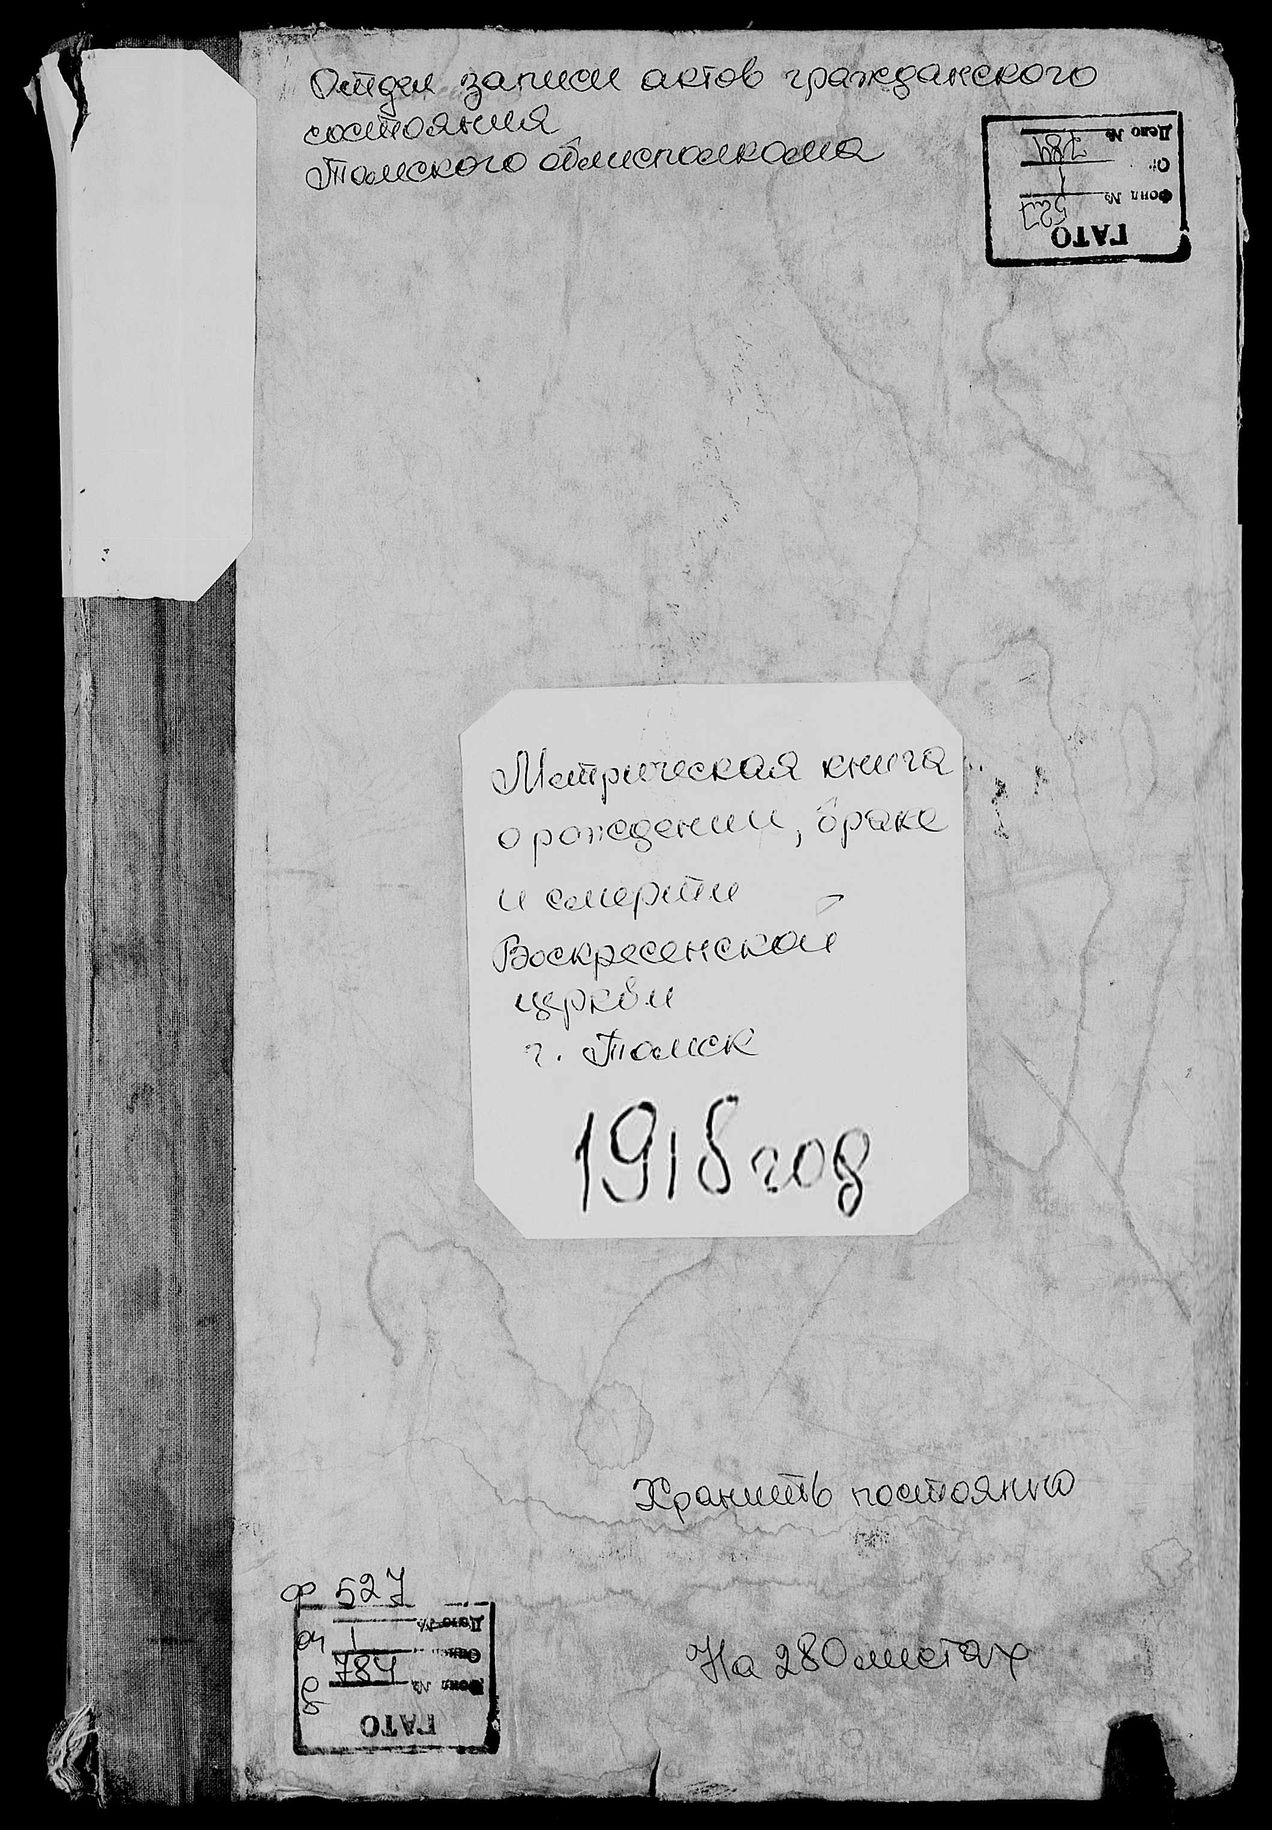 Отдел записи актов гражданского
состояния
Томского облисполкома
ГАТО
Фонд № 527
Оп. 1
Дело № 784
Метрическая книга
о рождении, браке
и смерти
Воскресенской
церкви
г. Томск
1918 год
Хранить постоянно
На 280 листах
ф 527
оп 1
д 784
Дело №
Опись
Фонд №
ГАТО